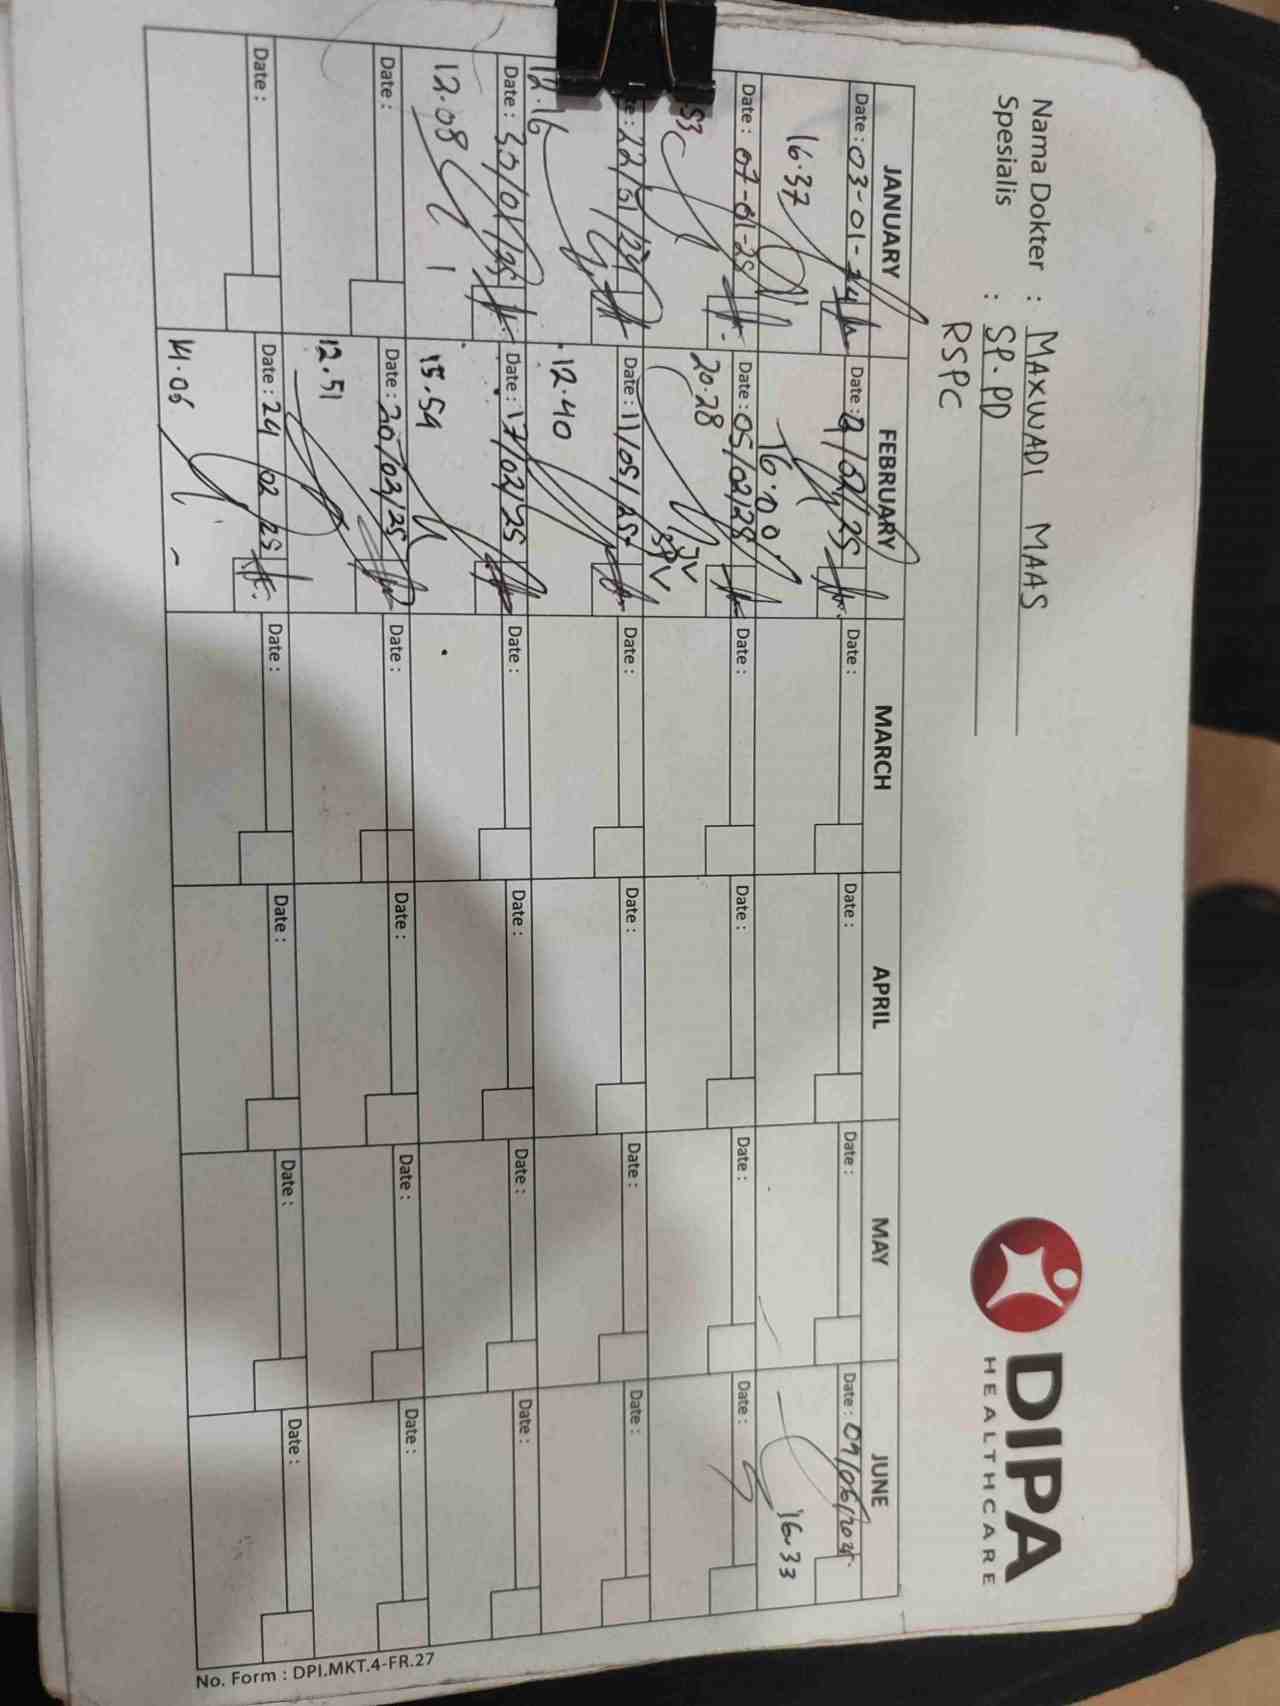 Nama Dokter : MAXWADI MAAS
Spesialis : SP.PD
RSPC
DIPA
HEALTHCARE
JANUARY FEBRUARY MARCH APRIL MAY JUNE
Date : 03-01- Date : /02/25 Date : Date : Date : Date : 09/06/202
16.37 16.00 16.33
Date : 07-01-25 Date : 05/02/25 Date : Date : Date : Date :
53 20.28
Date : 11/05/25 Date : Date : Date : Date :
12.16 12.40
Date : 30/01/25 Date : 17/02/25 Date : Date : Date : Date :
12.08 15.54
Date : Date : 20/02/25 Date : Date : Date : Date :
12.51
Date : Date : 24 02 25 Date : Date : Date : Date :
14.06
No. Form : DPI.MKT.4-FR.27